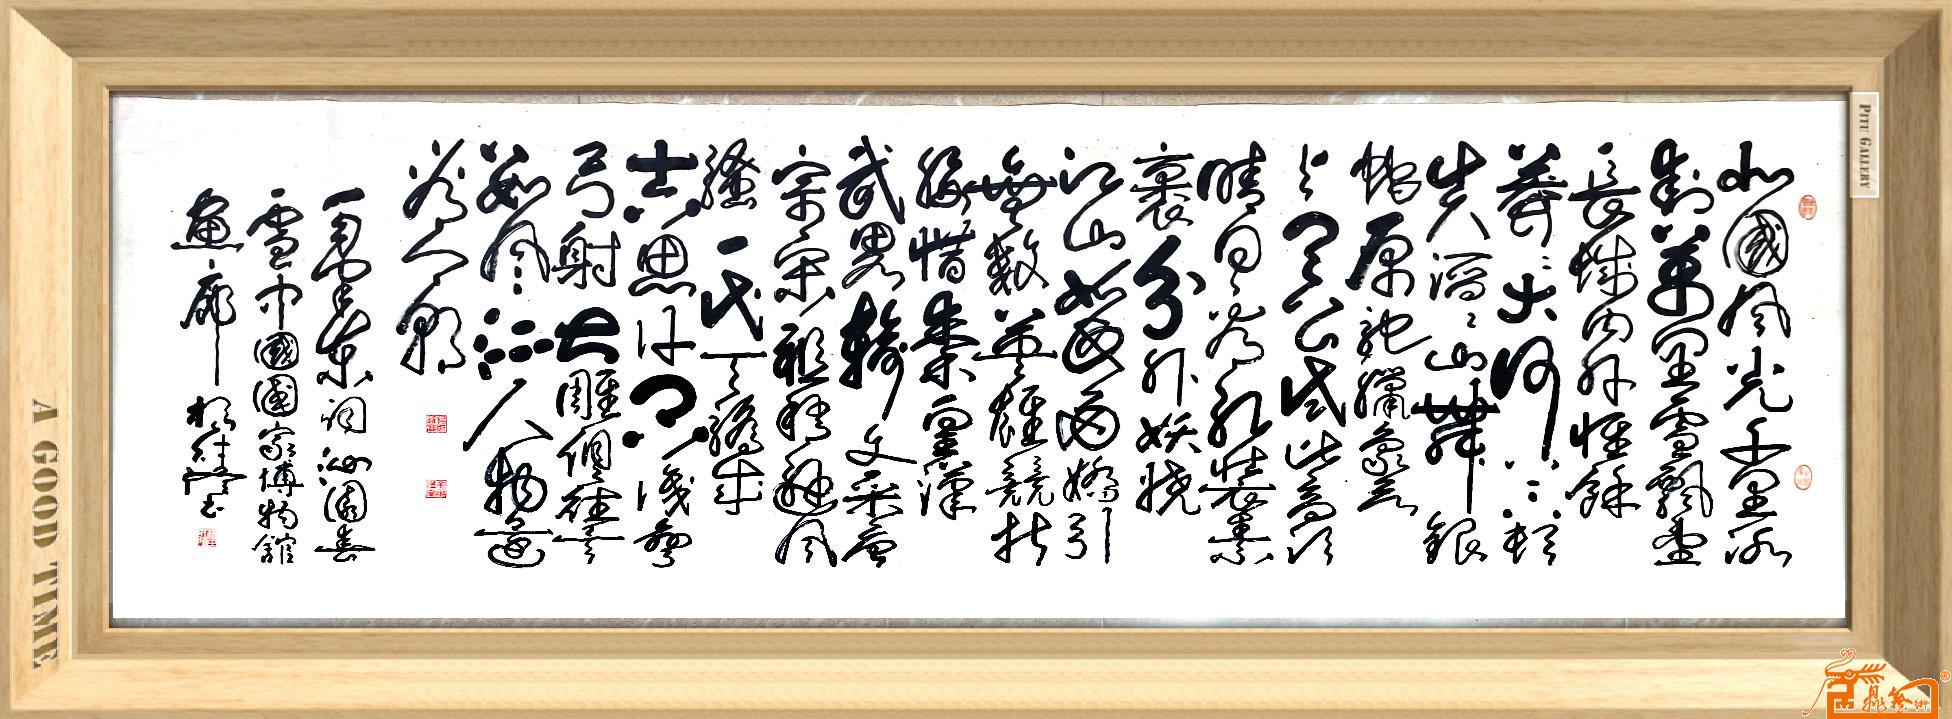 北國風光千里冰
封萬里雪飄望
長城內外惟餘
莽〻大河上下頓
失滔〻山舞銀
蛇原馳蠟象欲
与天公試比高須
晴日看紅裝素
裹分外妖嬈
江山如此多嬌引
無數英雄競折
腰惜秦皇漢
武略輸文采唐
宗宋祖稍遜風
騷一代天驕成
吉思汗只識彎
弓射大雕俱往矣
數風流人物還
看今朝
毛澤東詞沁園春
雪中國國家博物館
畫廊 楊書
PITU GALLERY
A GOOD TIME